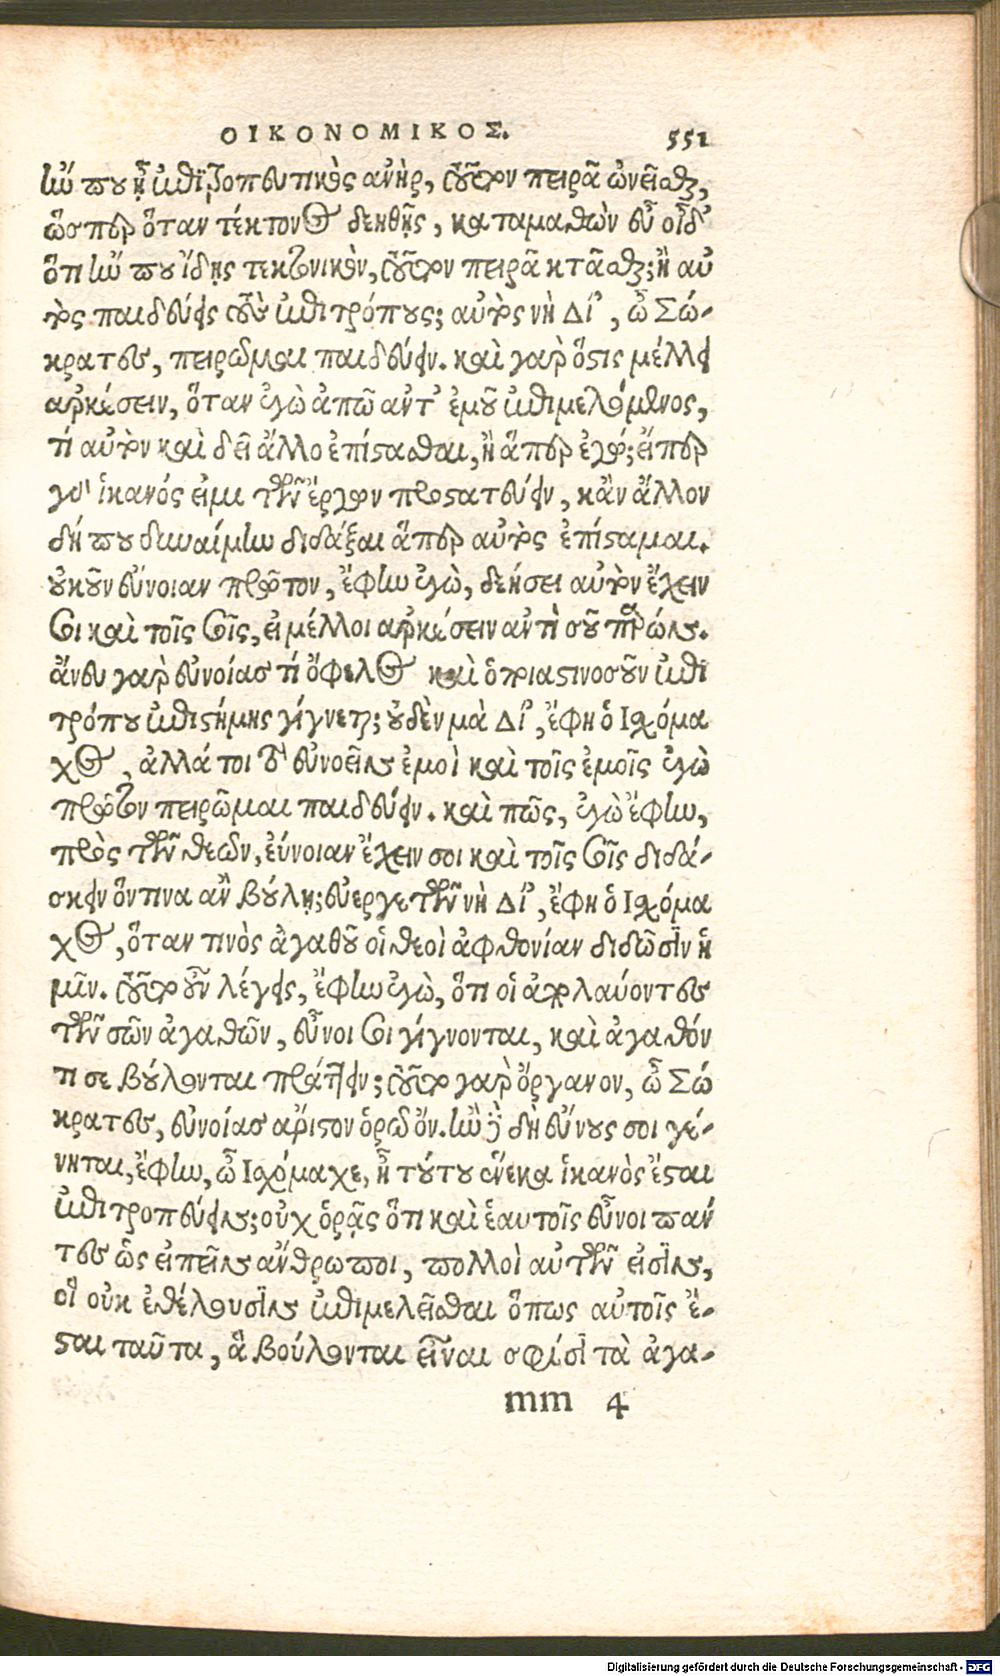 ΟΙΚΟΝΟΜΙΚΟΣ. 551
ἤν που ᾖ ἐπιτροπευτικὸς ἀνὴρ, τοῦτον πειρᾷ ὠνεῖσθαι,
ὥσπερ ὅταν τέκτονος δεηθῇς, καταμαθὼν εὖ οἶδ'
ὅτι ἤν που ἴδῃς τεκτονικὸν, τοῦτον πειρᾷ κτᾶσθαι; ἢ αὐ
τὸς παιδεύεις τοὺς ἐπιτρόπους; αὐτὸς νὴ Δί', ὦ Σώ-
κρατες, πειρῶμαι παιδεύειν. καὶ γὰρ ὅστις μέλλει
ἀρκέσειν, ὅταν ἐγὼ ἀπῶ ἀντ' ἐμοῦ ἐπιμελόμενος,
τί αὐτὸν καὶ δεῖ ἄλλο ἐπίστασθαι, ἢ ἅπερ ἐγώ; εἴπερ
γὰρ ἱκανός εἰμι τῶν ἔργων προστατεύειν, κἂν ἄλλον
δή που δυναίμην διδάξαι ἅπερ αὐτὸς ἐπίσταμαι.
οὐκοῦν εὔνοιαν πρῶτον, ἔφην ἐγὼ, δεήσει αὐτὸν ἔχειν
σοι καὶ τοῖς σοῖς, εἰ μέλλοι ἀρκέσειν ἀντὶ σοῦ παρών.
ἄνευ γὰρ εὐνοίας τί ὄφελος καὶ ὁποιαστινοσοῦν ἐπι
τρόπου ἐπιστήμης γίγνεται; οὐδὲν μὰ Δί', ἔφη ὁ Ἰσχόμα
χος, ἀλλά τοι τὸ εὐνοεῖν ἐμοὶ καὶ τοῖς ἐμοῖς ἐγὼ
πρῶτον πειρῶμαι παιδεύειν. καὶ πῶς, ἐγὼ ἔφην,
πρὸς τῶν θεῶν, εὔνοιαν ἔχειν σοι καὶ τοῖς σοῖς διδά-
σκειν ὅντινα ἂν βούλῃ; εὐεργετῶν νὴ Δί', ἔφη ὁ Ἰσχόμα
χος, ὅταν τινὸς ἀγαθοῦ οἱ θεοὶ ἀφθονίαν διδῶσιν ἡ
μῖν. τοῦτο οὖν λέγεις, ἔφην ἐγὼ, ὅτι οἱ ἀπολαύοντες
τῶν σῶν ἀγαθῶν, εὖνοι σοι γίγνονται, καὶ ἀγαθόν
τι σε βούλονται πράττειν; τοῦτο γὰρ ὄργανον, ὦ Σώ
κρατες, εὐνοίας ἄριστον ὁρῶ ὄν. ἢν δὲ δὴ εὔνους σοι γέ-
νηται, ἔφην, ὦ Ἰσχόμαχε, ἦ τούτου ἕνεκα ἱκανὸς ἔσται
ἐπιτροπεύειν; οὐχ ὁρᾷς ὅτι καὶ ἑαυτοῖς εὖνοι πάν
τες ὡς εἰπεῖν ἄνθρωποι, πολλοὶ αὐτῶν εἰσὶν,
οἳ οὐκ ἐθέλουσιν ἐπιμελεῖσθαι ὅπως αὐτοῖς ἔ-
σται ταῦτα, ἃ βούλονται εἶναι σφίσι τὰ ἀγα-
mm 4
Digitalisierung gefördert durch die Deutsche Forschungsgemeinschaft - DFG